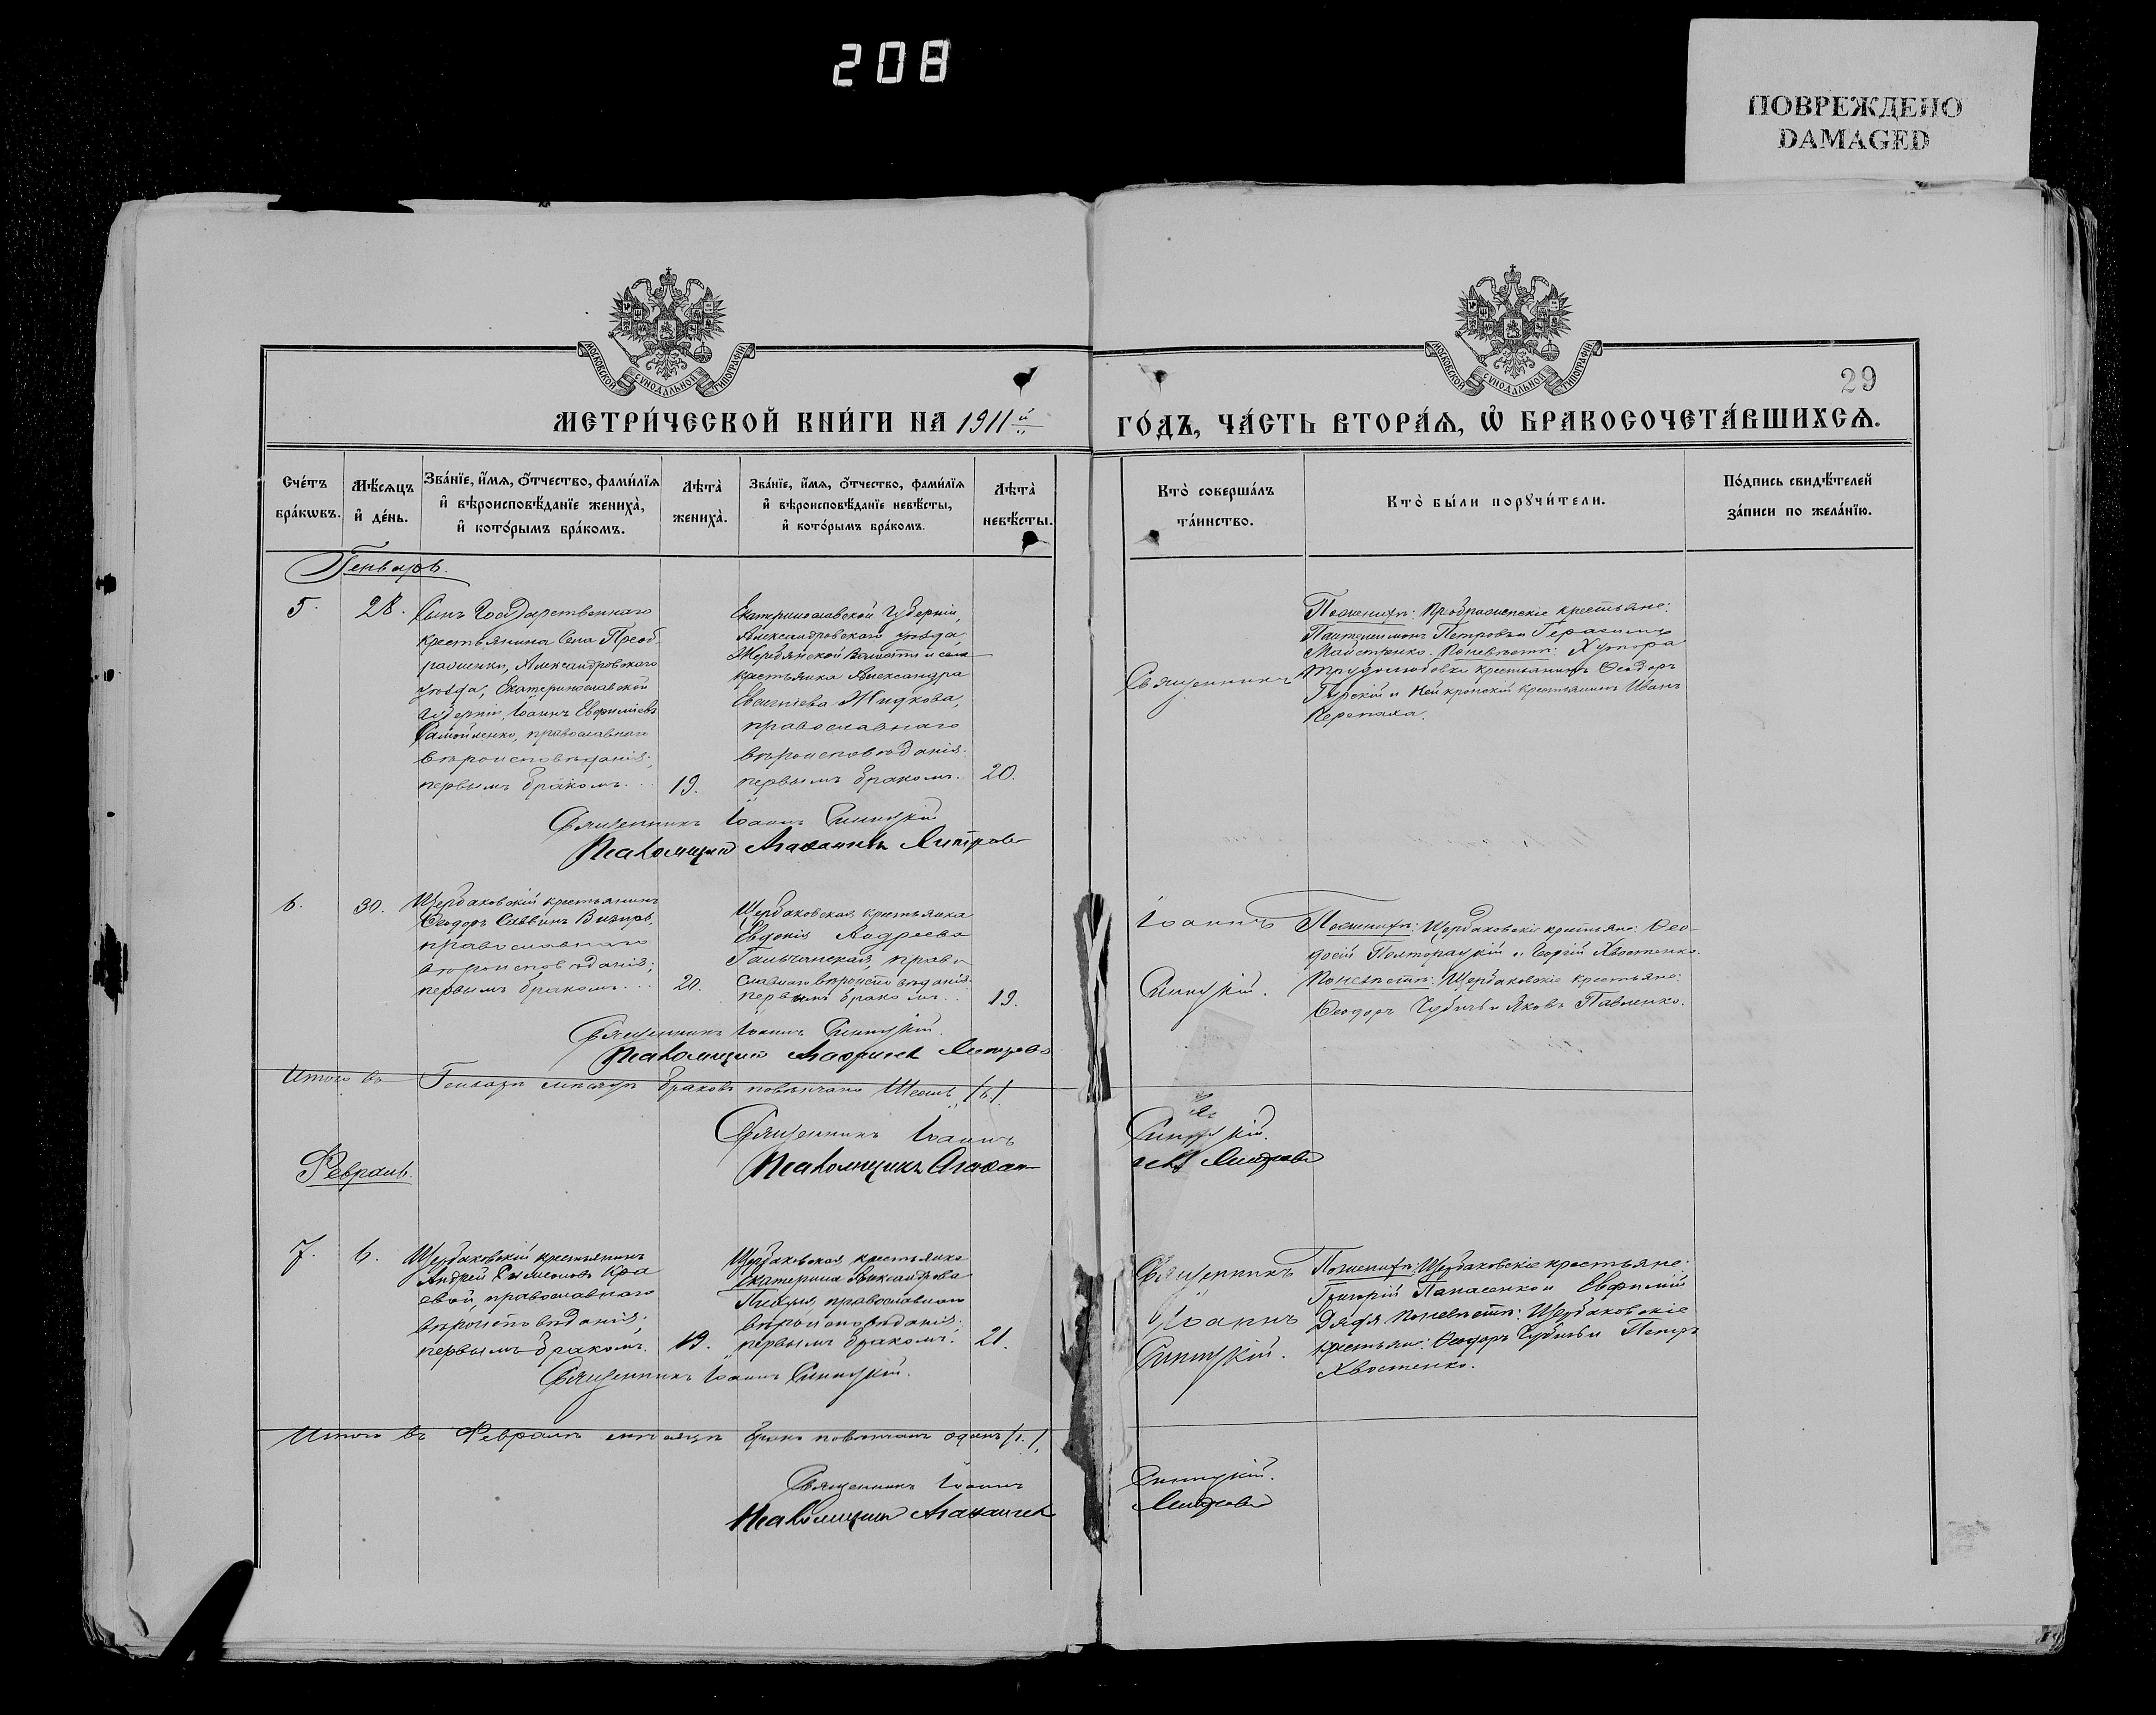 208
ПОВРЕЖДЕНО
DAMAGED
МОСКОВСКОЙ СѴНОДАЛЬНОЙ ТИПОГРАФІИ
МОСКОВСКОЙ СѴНОДАЛЬНОЙ ТИПОГРАФІИ
29
МЕТРИ́ЧЕСКОЙ КНИ́ГИ НА 1911й
ГО́ДЪ, ЧА́СТЬ ВТОРА́Ѧ, Ѽ БРАКОСОЧЕТА́ВШИХСѦ.
Сче́тъ бра́кѡвъ.
Мѣ́сѧцъ и҆ де́нь.
Зва́нїе, и҆́мѧ, ѻ҆́тчество, фами́лїѧ и҆ вѣроисповѣ́данїе жениха̀, и҆ кото́рымъ бра́комъ.
Лѣта̀ жениха̀.
Зва́нїе, и҆́мѧ, ѻ҆́тчество, фами́лїѧ и҆ вѣроисповѣ́данїе невѣ́сты, и҆ кото́рымъ бра́комъ.
Лѣта̀ невѣ́сты.
Кто̀ соверша́лъ та́инство.
Кто̀ бы́ли порꙋчи́тели.
По́дпись свидѣ́телей за́писи по жела́нїю.
Генварь.
5.
28.
Сынъ Государственнаго
крестьянина Села Преоб
раженки, Александровскаго
уѣзда, Екатеринославской
губерніи, Іоаннъ Евфиміевъ
православнаго
вѣроисповѣданія;
первымъ бракомъ...
19.
Екатеринославской губерніи,
Александровскаго уѣзда
волости и села
крестьянка Александра
Жидкова,
православнаго
вѣроисповѣданія;
первымъ бракомъ.
20.
Священникъ
По женихѣ: Преображенскіе крестьяне:
Пантелеимонъ Петровъ и Герасимъ
По невѣстѣ: Хутора
Трудолюбовки крестьянинъ Ѳеодоръ
крестьянинъ Иванъ
Черепаха.
Священникъ Іоаннъ Синицкій
Псаломщикъ
6.
30.
Щербаковскій крестьянинъ
Ѳеодоръ Саввинъ Визиръ,
православнаго
вѣроисповѣданія;
первымъ бракомъ...
20.
Щербаковская крестьянка
Евдокія Андреева
право
славнаго вѣроисповѣданія
первымъ бракомъ..
19.
Іоаннъ
Синицкій.
По женихѣ: Щербаковскіе крестьяне: Ѳео
досій Полторацкій и Георгій Хвостенко.
По невѣстѣ: Щербаковскіе крестьяне:
Ѳеодоръ и Яковъ Павленко.
Священникъ Іоаннъ Синицкій.
Псаломщикъ
Итого въ Генварѣ мѣсяцѣ браковъ повѣнчано Шесть /6/.
Священникъ Іоаннъ Синицкій.
Псаломщикъ
Февраль.
7.
6.
Щербаковскій крестьянинъ
Андрей Симеоновъ Кра
евой, православнаго
вѣроисповѣданія;
первымъ бракомъ.
19.
Щербаковская крестьянка
Екатерина Александрова
православнаго
вѣроисповѣданія;
первымъ бракомъ.
21.
Священникъ
Іоаннъ
Синицкій.
По женихѣ: Щербаковскіе крестьяне:
Григорій Панасенко и Евфимій
Дядя. По невѣстѣ: Щербаковскіе
крестьяне: Ѳеодоръ и Петръ
Хвостенко.
Священникъ Іоаннъ Синицкій.
Итого въ Февралѣ мѣсяцѣ бракъ повѣнчанъ одинъ /1/.
Священникъ Іоаннъ Синицкій.
Псаломщикъ